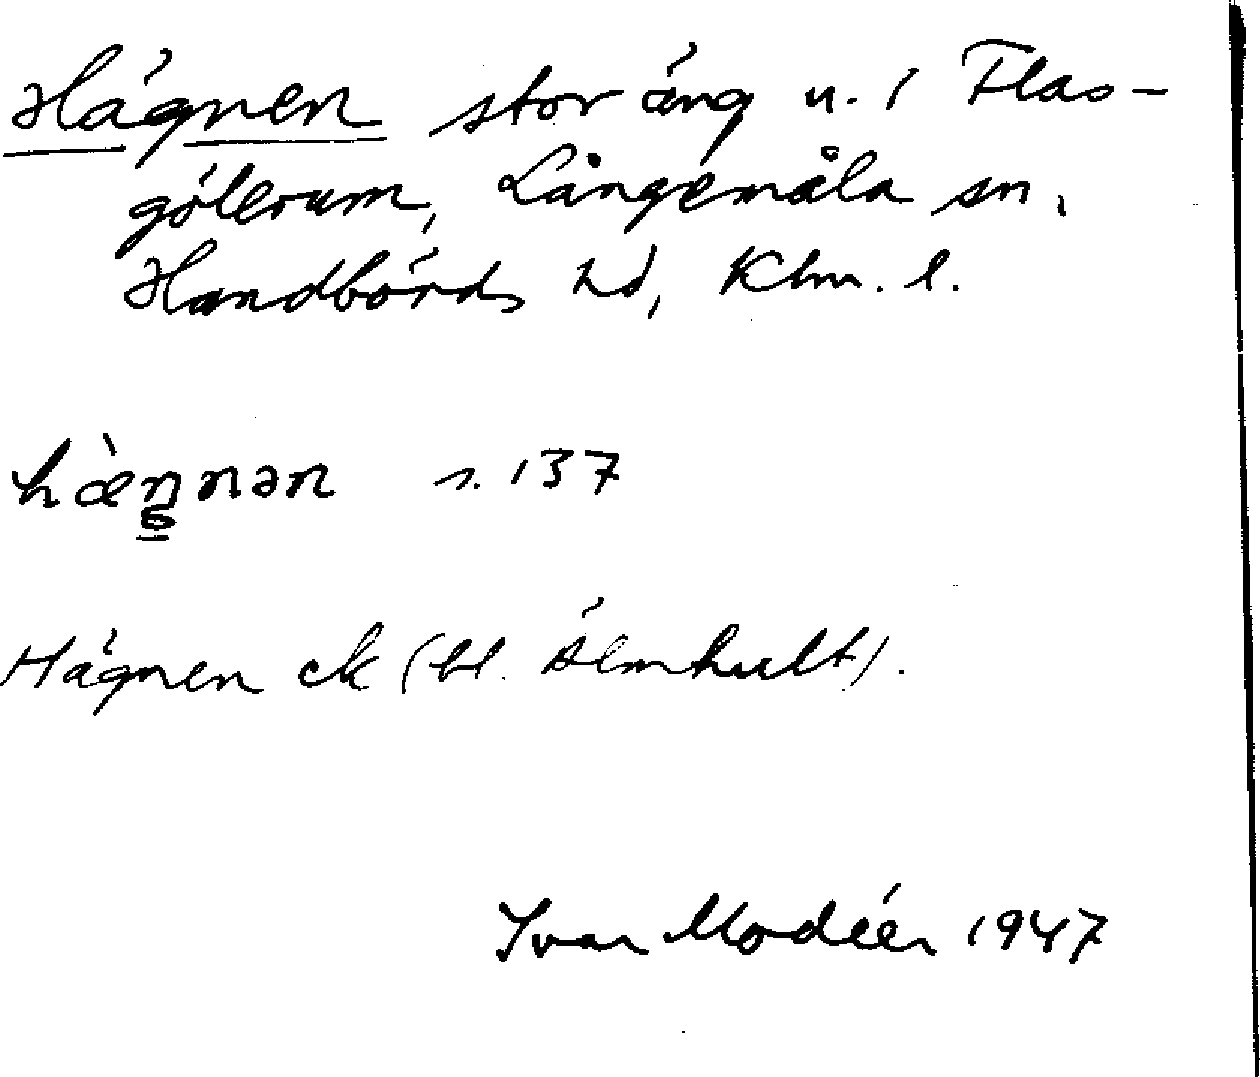 Hägnen stor äng u. 1 Flas-
gölerum, Långemåla sn.
Handbörds hd, Klm. l.
hæ̀ŋnən s. 137
Hägnen ek (bl. Älmhult).
Ivar Modéer 1947